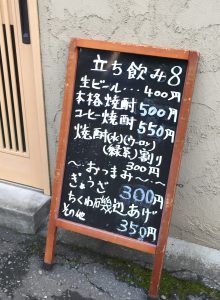 立ち飲み8
生ビール...400円
本格焼酎500円
コーヒー焼酎550円
焼酎(水)(ウーロン)
(緑茶)割り
300円
〜おつまみ〜
ぎょうざ
300円
ちくわ磯辺あげ
その他 350円